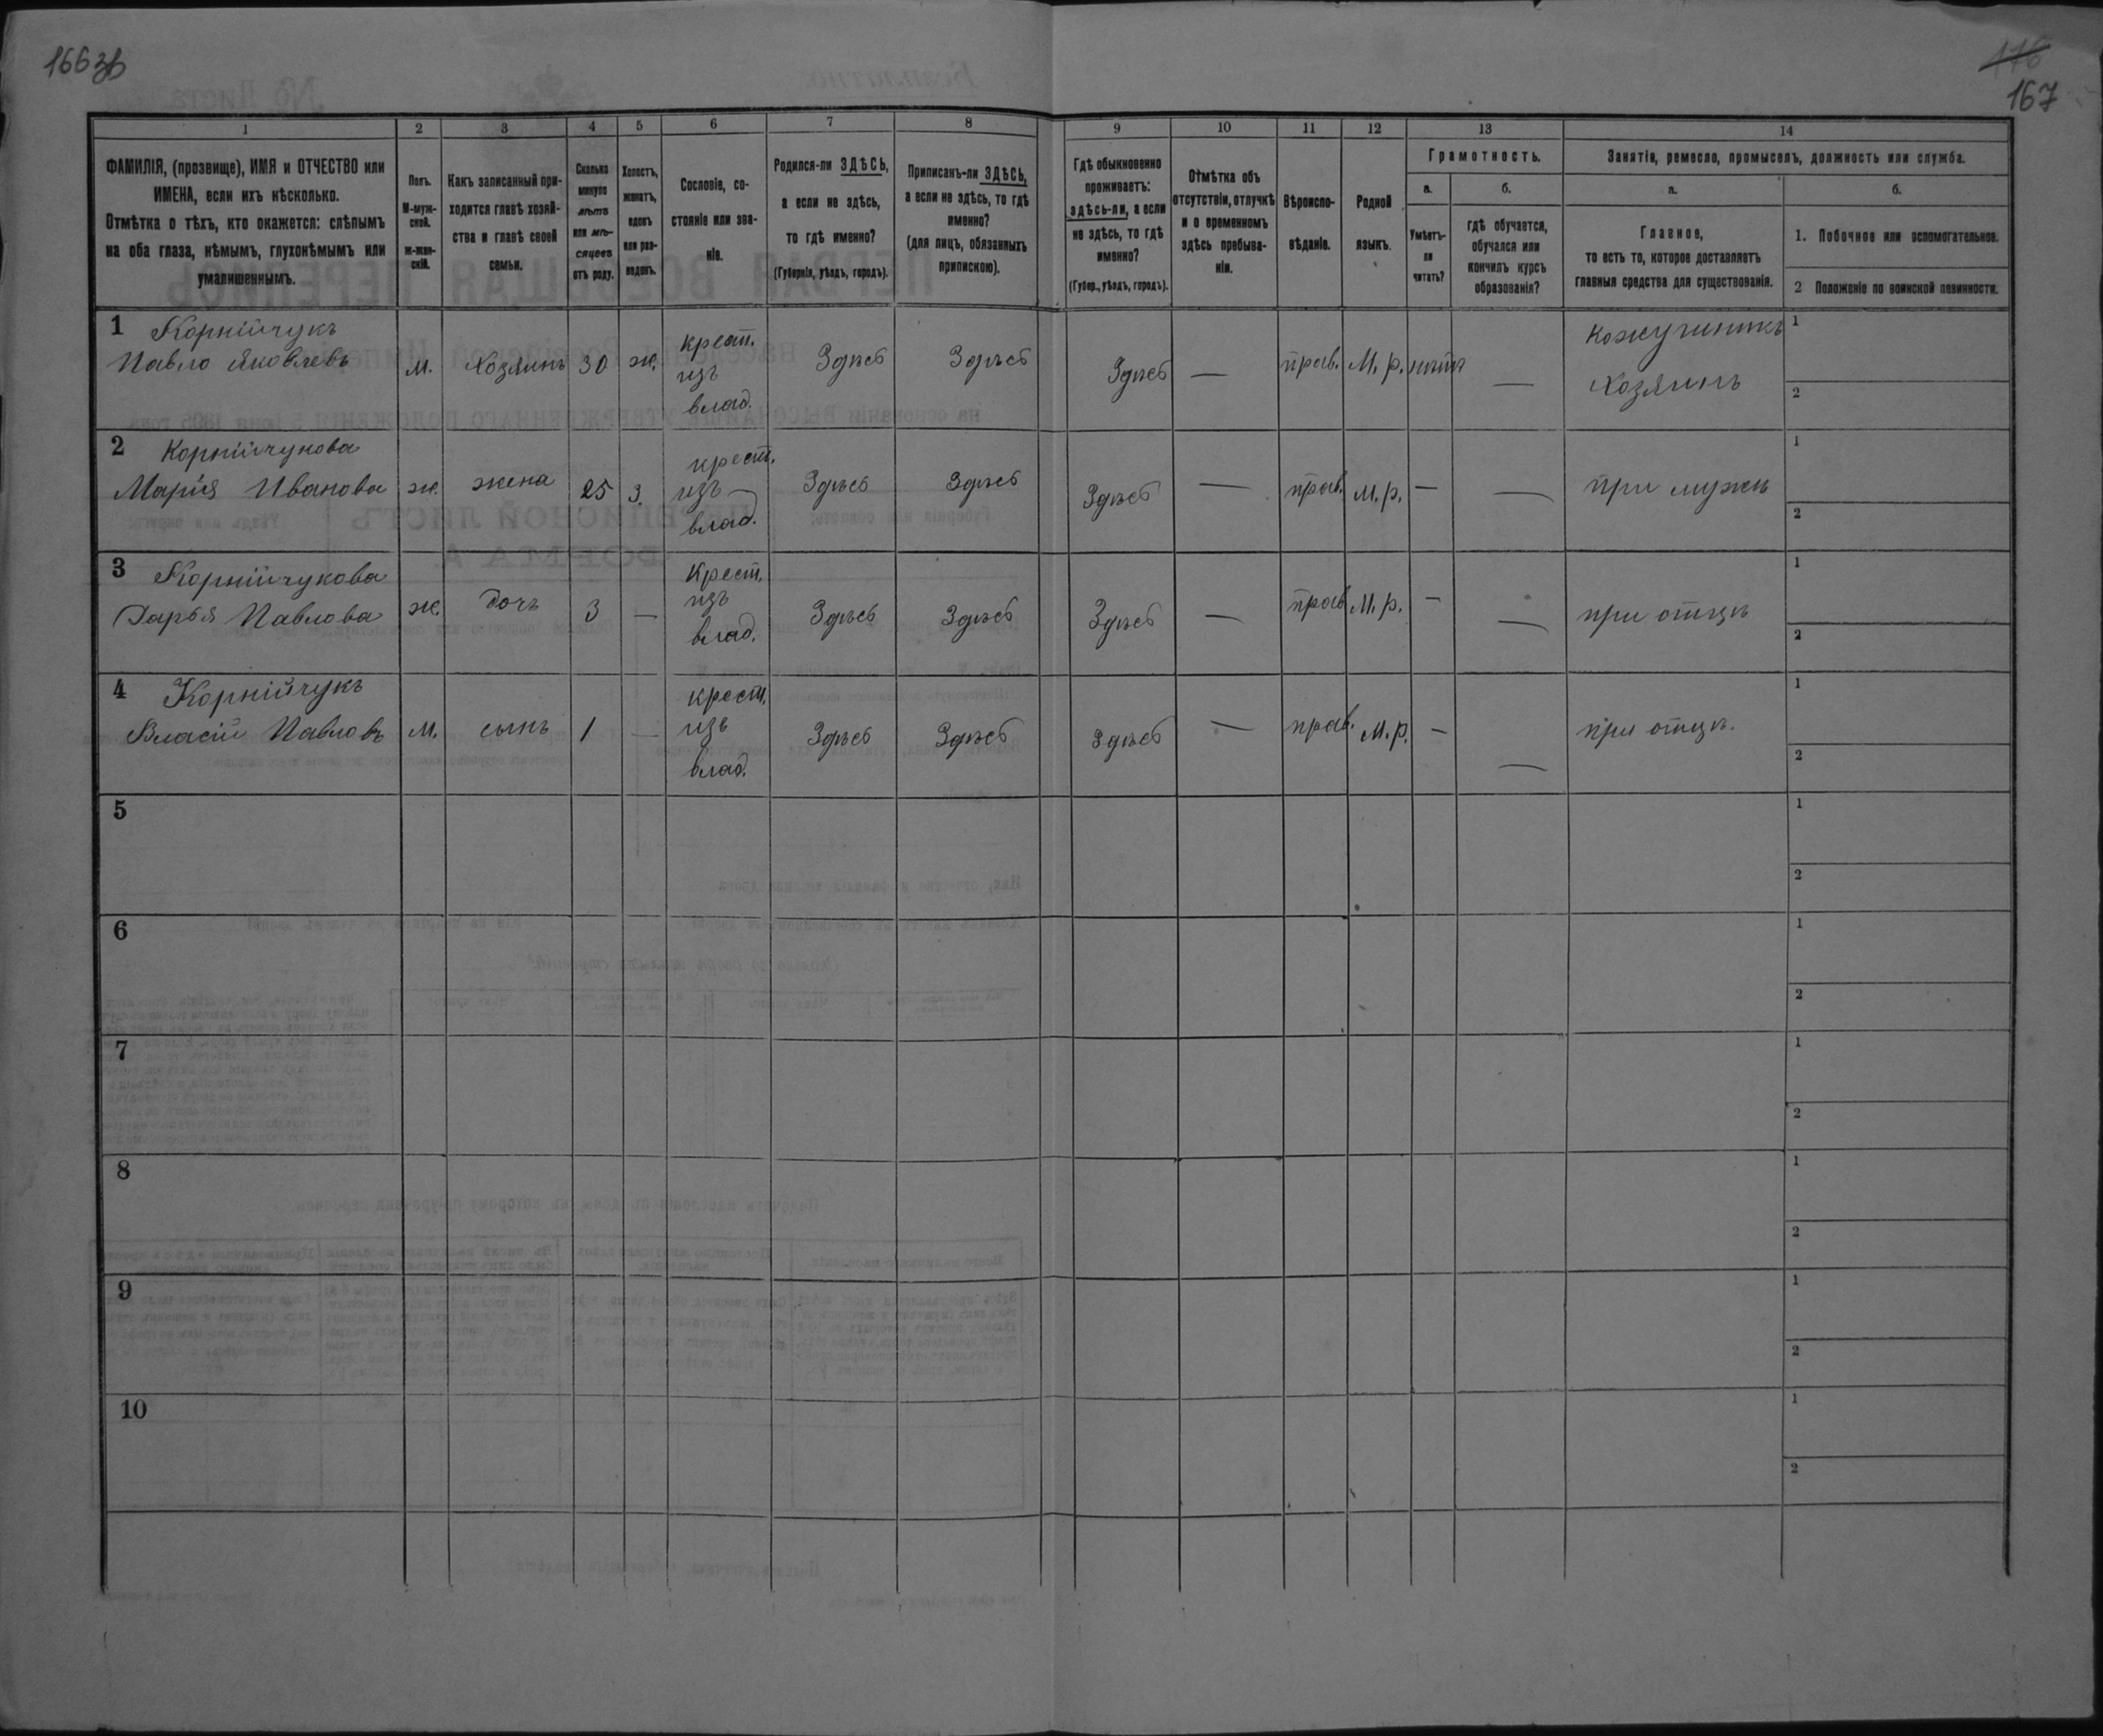 166 зв
176
167
1
2
3
4
5
6
7
8
9
10
11
12
13
14
ФАМИЛІЯ, (прозвище), ИМЯ и ОТЧЕСТВО или
ИМЕНА, если ихъ нѣсколько.
Отмѣтка о тѣхъ, кто окажется: слѣпымъ
на оба глаза, нѣмымъ, глухонѣмымъ или
умалишеннымъ.
Полъ.
М-муж-
ской.
ж-жен-
скій.
Какъ записанный при-
ходится главѣ хозяй-
ства и главѣ своей
семьи.
Сколько
минуло
лѣтъ
или мѣ-
сяцевъ
отъ роду.
Холостъ,
женатъ,
вдовъ
или раз-
веденъ.
Сословіе, со-
стояніе или зва-
ніе.
Родился-ли ЗДѢСЬ,
а если не здѣсь,
то гдѣ именно?
(Губернія, уѣздъ, городъ).
Приписанъ-ли ЗДѢСЬ,
а если не здѣсь, то гдѣ
именно?
(для лицъ, обязанныхъ
припискою).
Гдѣ обыкновенно
проживаетъ:
здѣсь-ли, а если
не здѣсь, то гдѣ
именно?
(Губер., уѣздъ, городъ).
Отмѣтка объ
отсутствіи, отлучкѣ
и о временномъ
здѣсь пребыва-
ніи.
Вѣроиспо-
вѣданіе.
Родной
языкъ.
Грамотность.
а.
б.
Умѣетъ-
ли
читать?
гдѣ обучается,
обучался или
кончилъ курсъ
образованія?
Занятіе, ремесло, промыселъ, должность или служба.
а.
б.
Главное,
то есть то, которое доставляетъ
главныя средства для существованія.
1. Побочное или вспомогательное.
2 Положеніе по воинской повинности.
1 Корнійчукъ
Павло Яковлевъ
м. Хозяинъ 30 ж.
крест.
изъ
влад.
Здѣсь Здѣсь Здѣсь — прав. М. р. нѣтъ —
кожушникъ
Хозяинъ
1
2
2 Корнійчукова
Марія Иванова
ж. жена 25 з.
крест.
изъ
влад.
Здѣсь Здѣсь Здѣсь — прав. м. р. — — при мужѣ
1
2
3 Корнійчукова
Дарья Павлова
ж. дочь 3 —
Крест.
изъ
влад.
Здѣсь Здѣсь Здѣсь — прав. М. р. — — при отцѣ
1
2
4 Корнійчукъ
Власій Павловъ
м. сынъ 1 —
крест.
изъ
влад.
Здѣсь Здѣсь Здѣсь — прав. М. р. — — при отцѣ.
1
2
5
1
2
6
1
2
7
1
2
8
1
2
9
1
2
10
1
2